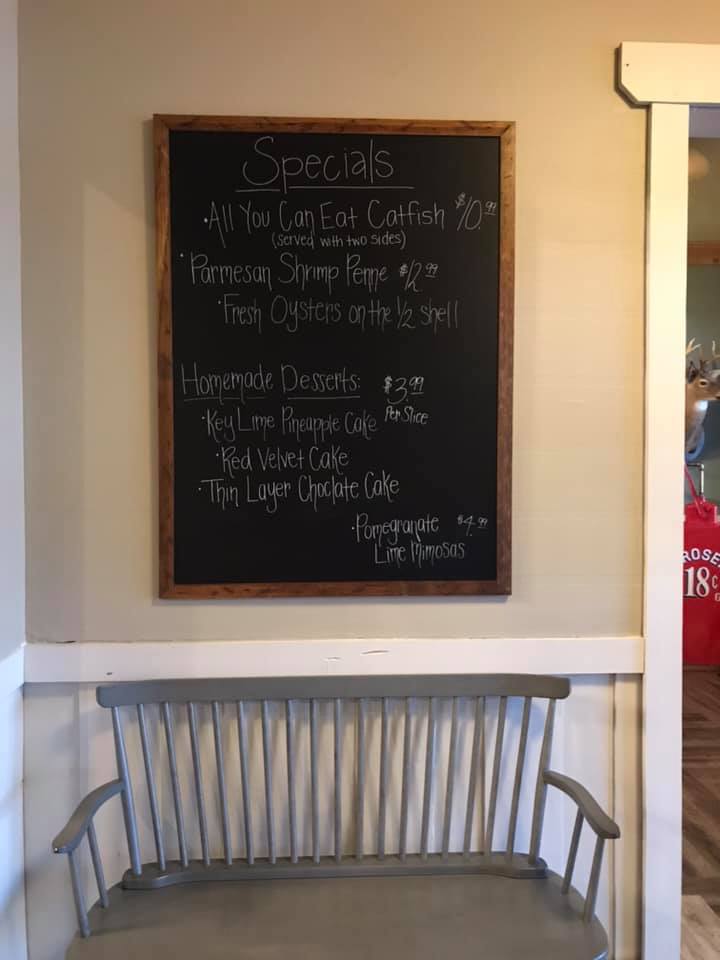 Specials
·All You Can Eat Catfish $10.99
(served with two sides)
·Parmesan Shrimp Penne $12.99
·Fresh Oysters on the 1/2 shell
Homemade Desserts: $3.99
Per Slice
·Key Lime Pineapple Cake
·Red Velvet Cake
·Thin Layer Choclate Cake
·Pomegranate $4.99
Lime Mimosas
18¢